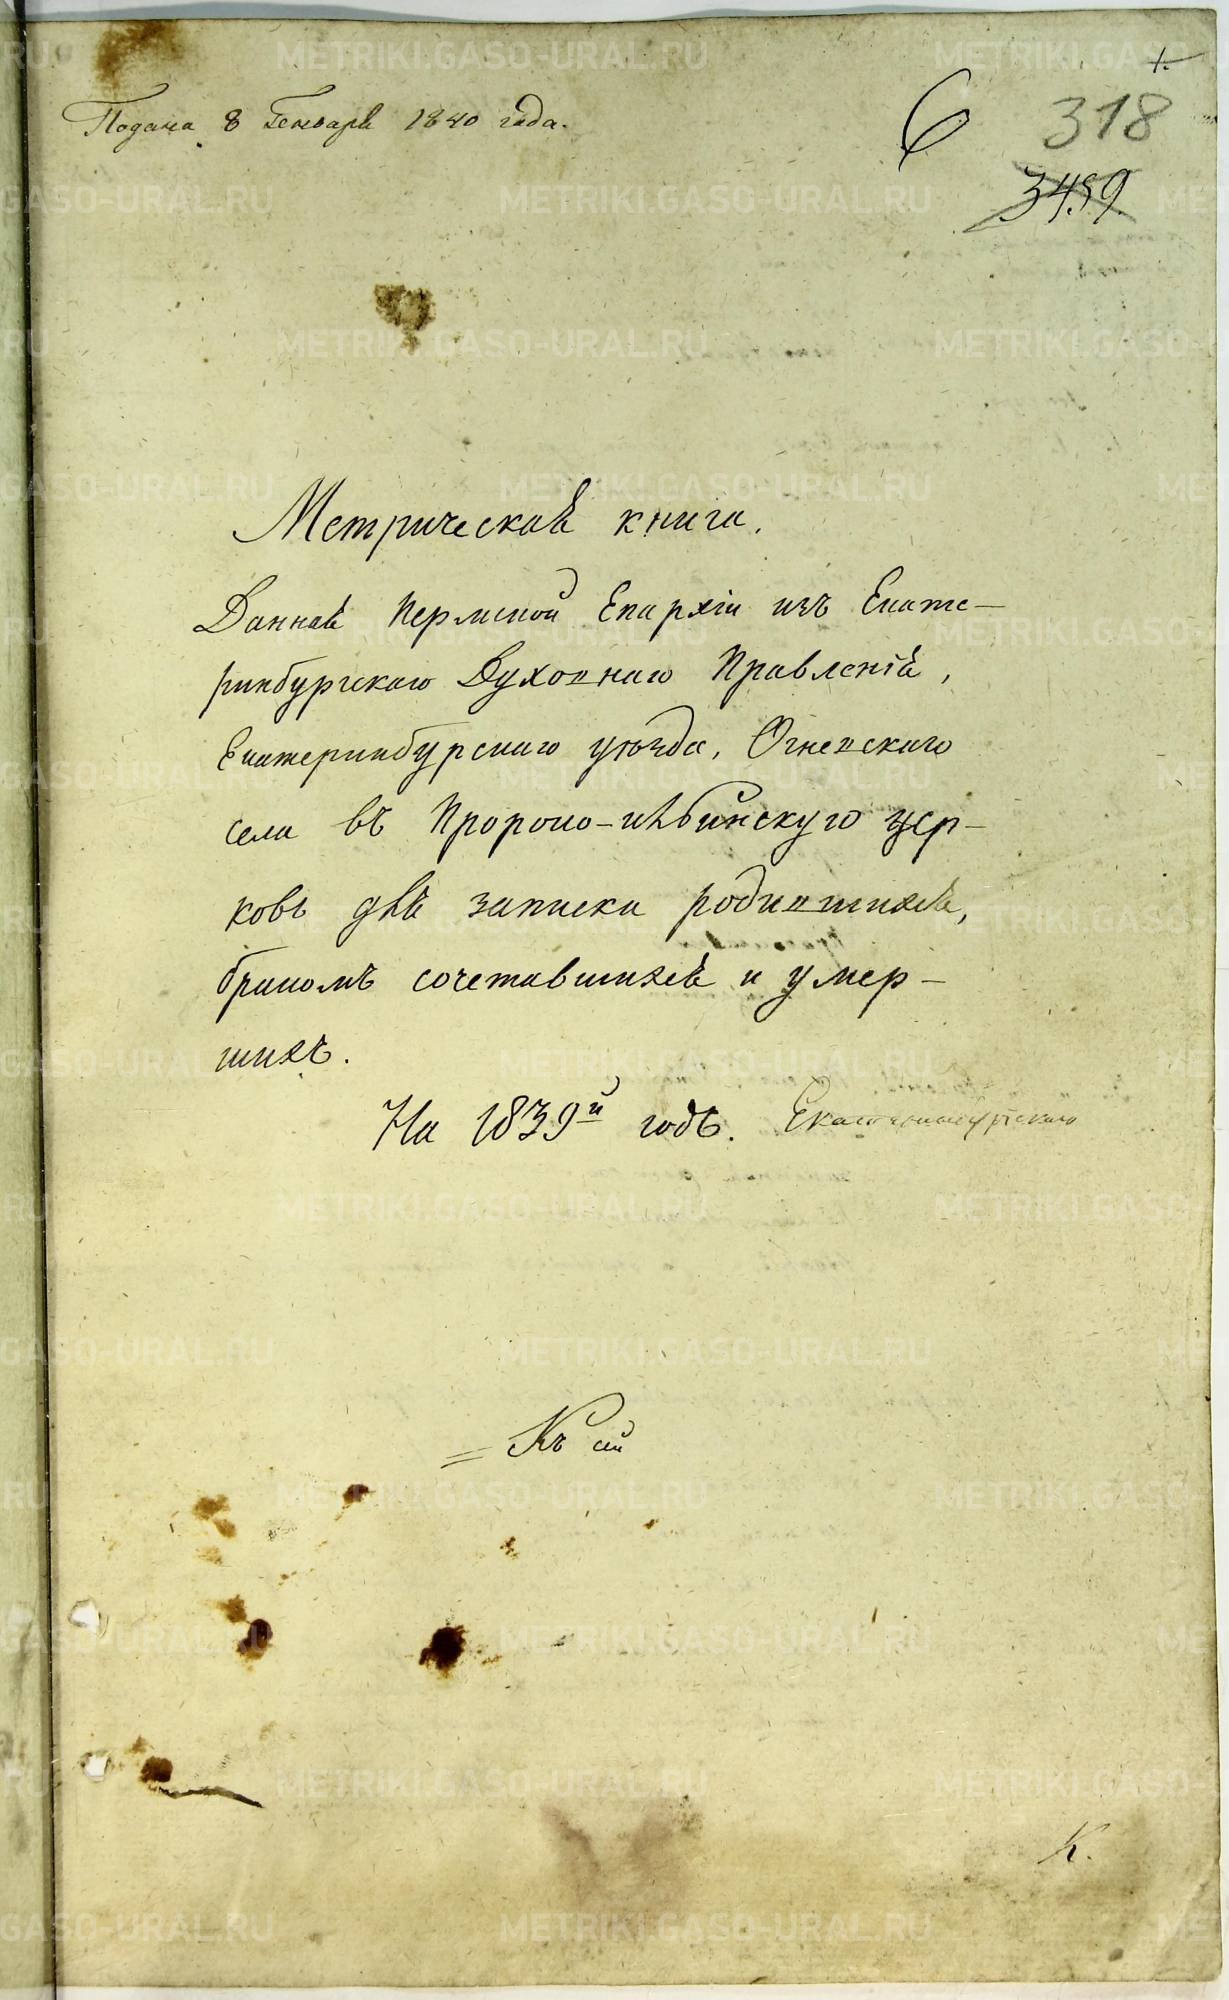 1.
Подана 8 Генваря 1840 года.
6
318
3459
Метрическая книга.
Данная Пермской Епархіи изъ Екате-
ринбургскаго Духовнаго Правленія,
Екатеринбурскаго уѣзда, Огневскаго
села въ Пророко-Ильинскую цер-
ковь для записки родившихся,
бракомъ сочетавшихся и умер-
шихъ.
На 1839й годъ. Екатеринбургскаго
= Къ сей
К.
METRIKI.GASO-URAL.RU